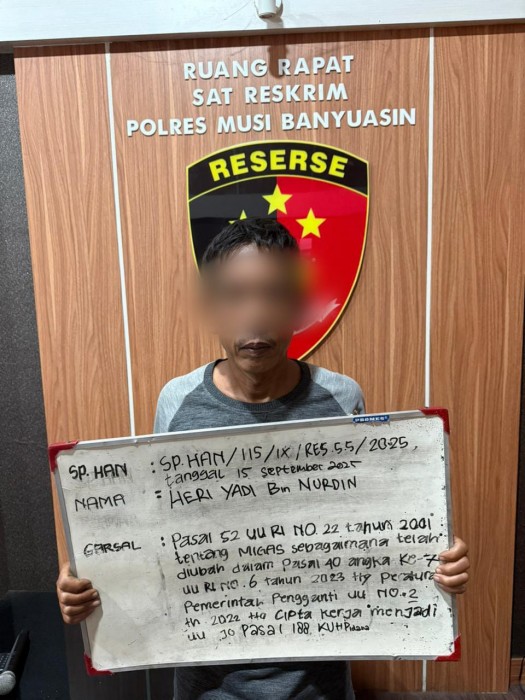 RUANG RAPAT
SAT RESKRIM
POLRES MUSI BANYUASIN
RESERSE
PROMEST
SP. HAN : SP. HAN / 115 / IX / RES.5.5 / 2025,
tanggal 15 september 2025
NAMA = HERI YADI Bin NURDIN
GARSAL : Pasal 52 UU RI NO. 22 tahun 2001
tentang MIGAS sebagaimana telah
diubah dalam Pasal 40 angka Ke-7
UU RI NO. 6 tahun 2023 Ttg Peratura
Pemerintah Pengganti UU NO. 2
th 2022 Ttg Cipta Kerja menjadi
UU JO Pasal 188 KUHPidana